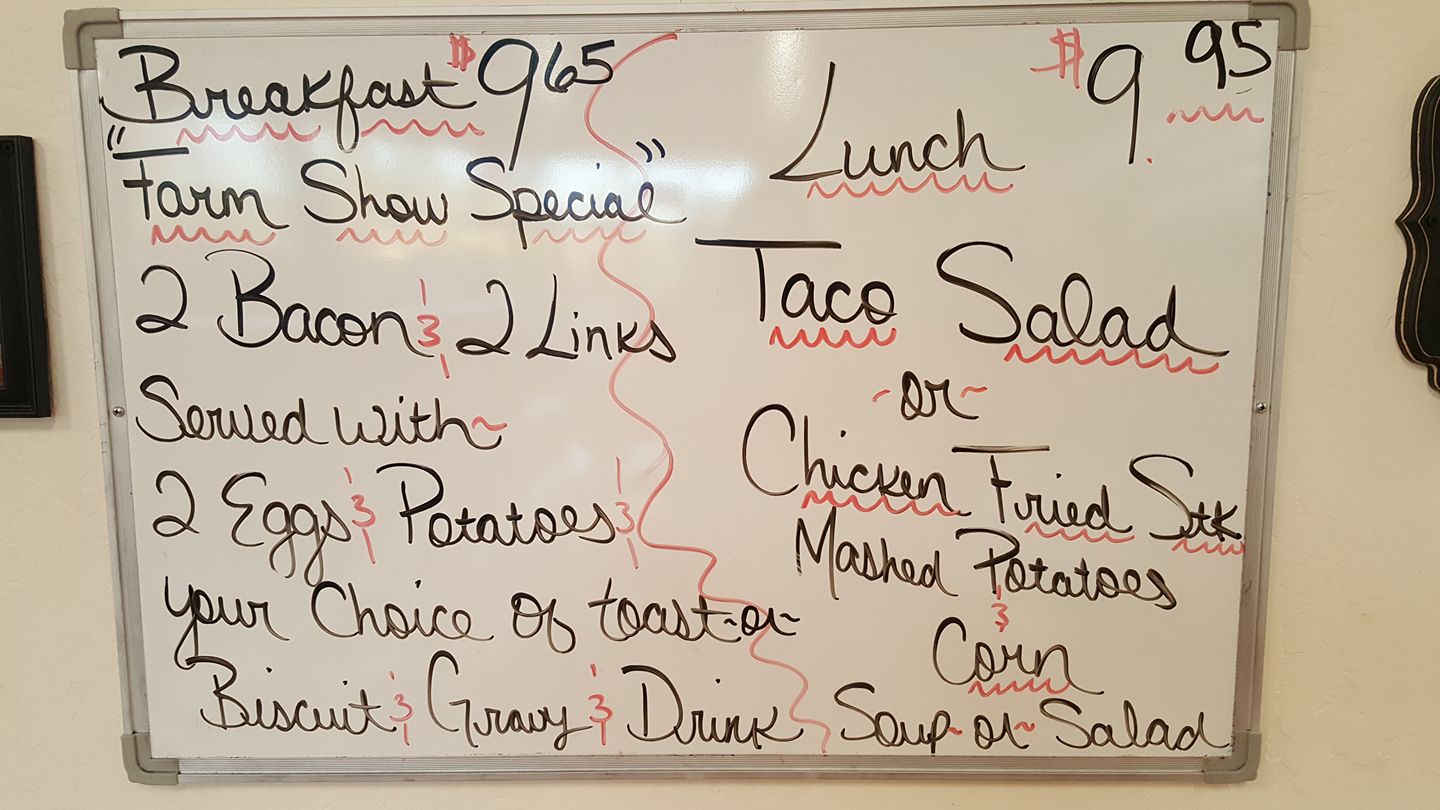 Breakfast $9 65
"Farm Show Special"
2 Bacon & 2 Links
Served with~
2 Eggs & Potatoes &
your Choice of toast~or~
Biscuit & Gravy & Drink
$9. 95
Lunch
Taco Salad
~or~
Chicken Fried Stk
Mashed Potatoes
&
Corn
Soup~or~Salad